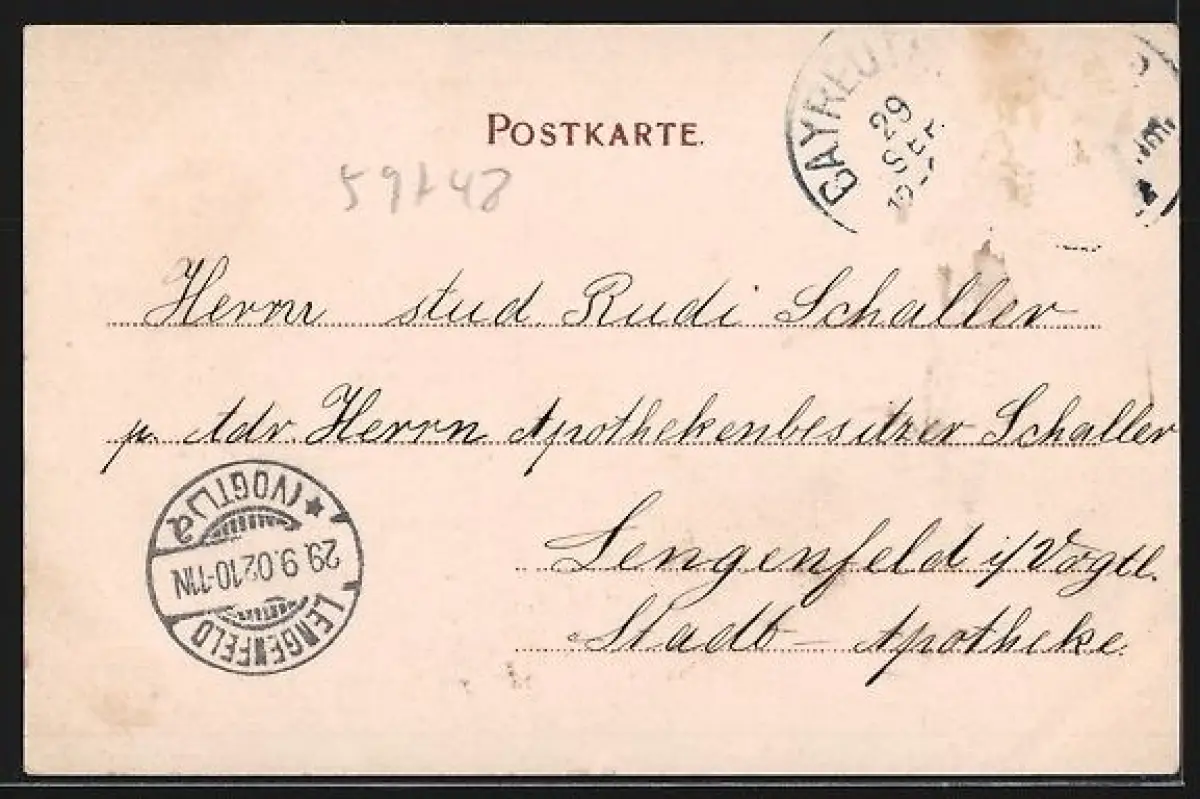 POSTKARTE.
BAYREUT
29
SEP
59147
Herrn stud. Rudi Schaller
p. Adr. Herrn Apothekenbesitzer Schaller
Lengenfeld i/Vogtl.
Stadt-Apotheke.
LENGENFELD
29.9.02.10-11N
* (VOGTL.) a